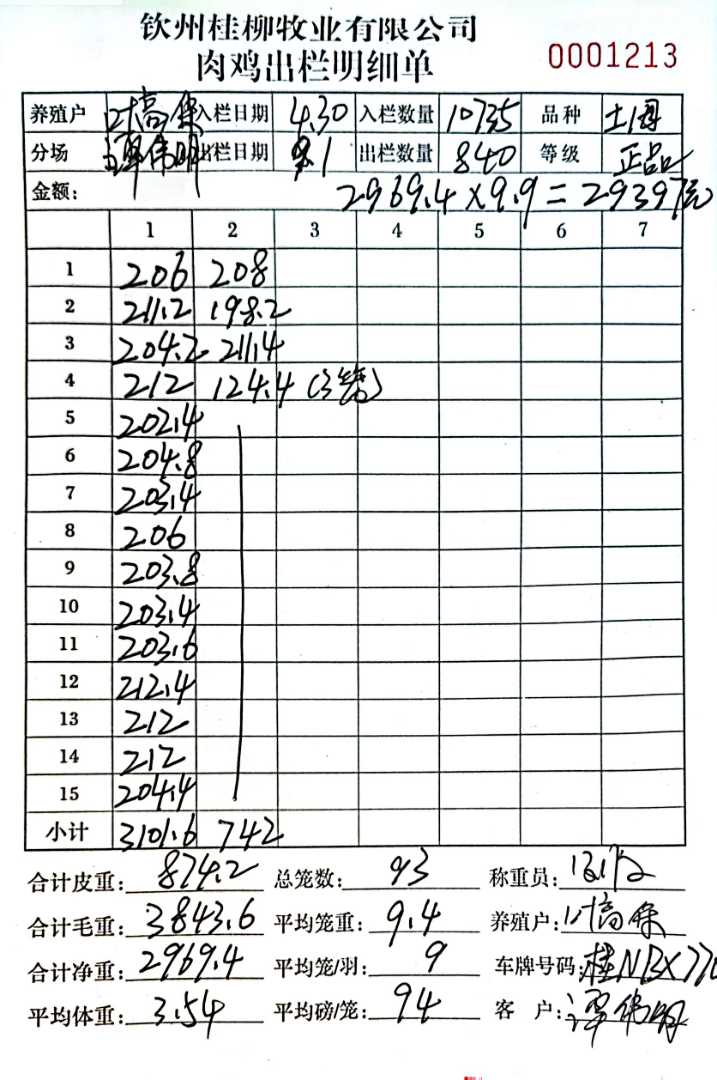 钦州桂柳牧业有限公司
肉鸡出栏明细单
0001213
养殖户 叶高保 入栏日期 4.30 入栏数量 10735 品种
分场 谭伟明 出栏日期 9.1 出栏数量 840 等级 正品
金额: 2969.4×9.9=29397元
1 2 3 4 5 6 7
1 206 208
2 211.2 198.2
3 204.2 211.4
4 212 124.4 (3笼)
5 202.4
6 204.8
7 203.4
8 206
9 203.8
10 203.4
11 203.6
12 212.4
13 212
14 212
15 204.4
小计 3101.6 742
合计皮重: 874.2 总笼数: 93 称重员:
合计毛重: 3843.6 平均笼重: 9.4 养殖户: 叶高保
合计净重: 2969.4 平均笼/羽: 9 车牌号码: 桂NBX770
平均体重: 3.54 平均磅/笼: 94 客 户: 谭伟明